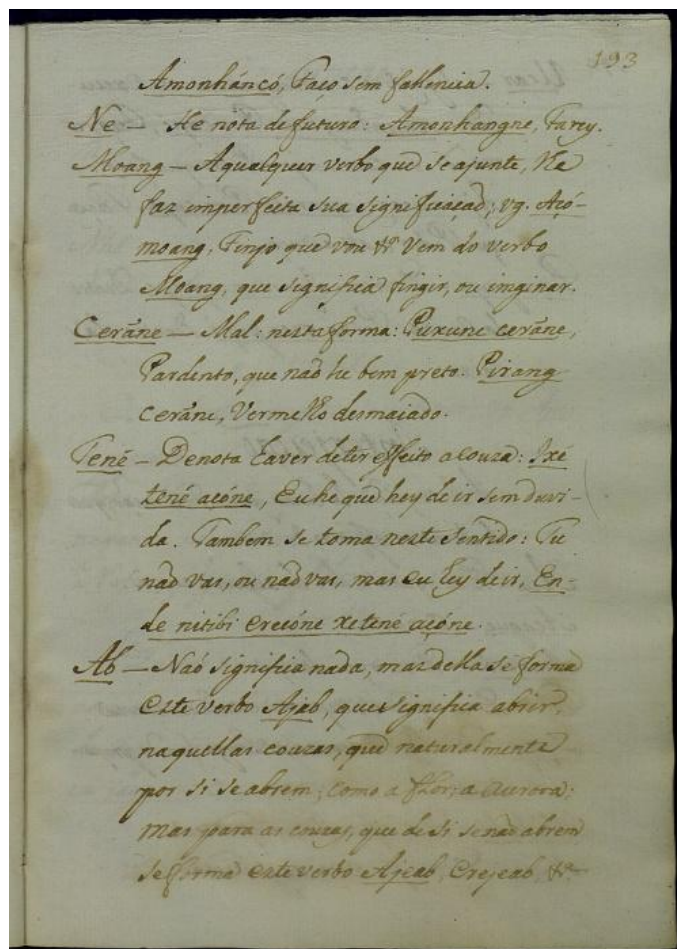 193
Amonháncó, Faço sem fallencia.
Ne — He nota de futuro: Amonhangne, Farey.
Moang — A qualquer verbo que se ajunte, lhe
faz imperfeita sua significaçaõ; vg. Açó-
moang, Finjo que vou &ª Vem do verbo
Moang, que significa fingir, ou imginar.
Ceráne — Mal: nesta forma: Puxune ceráne,
Pardento, que naõ he bem preto. Pirang
ceráne, Vermelho desmaiado.
Tené — Denota haver de ter effeito a couza: Ixé
tené açóne, Eu he que hey de ir sem duvi-
da. Tambem se toma neste sentido: Tu
naõ vas, ou naõ vas, mas eu hey de ir, En-
de nitibi ereçóne xe tené açóne.
Ab — Naõ significa nada, mas della se forma
este verbo Ajáb, que significa abrir,
naquellas couzas, que naturalmente
por si se abrem, como a flor, a aurora;
mas para as couzas, que de si se naõ abrem
se forma este verbo Ajeab, Erejeab, &ª